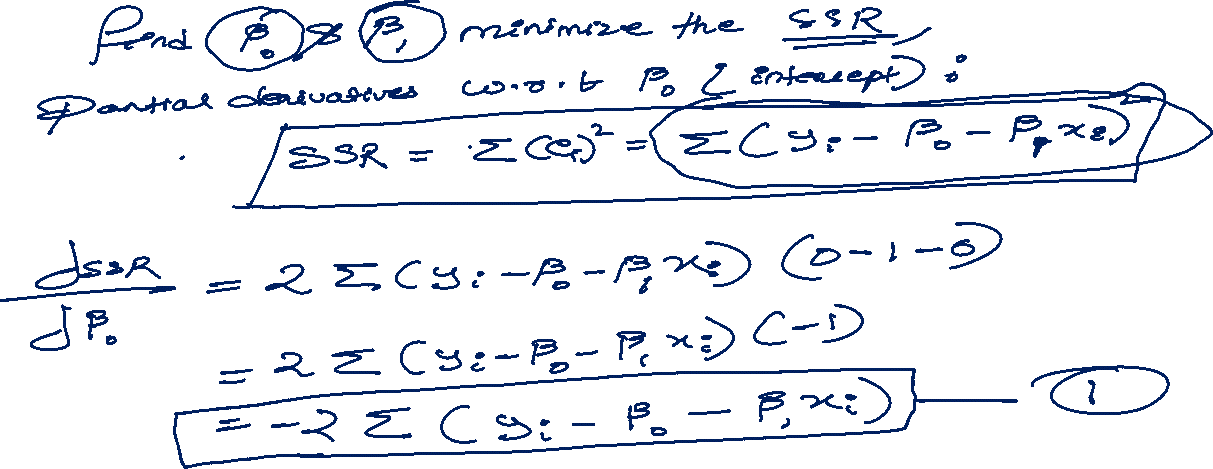 Find β₀ & β₁ minimize the SSR
Partial derivatives w.r.t β₀ (intercept) :
SSR = Σ(eᵢ)² = Σ(yᵢ - β₀ - β₁xᵢ)²
dSSR/dβ₀ = 2 Σ(yᵢ - β₀ - β₁xᵢ) (0-1-0)
= 2 Σ (yᵢ - β₀ - β₁xᵢ) (-1)
= -2 Σ (yᵢ - β₀ - β₁xᵢ) — 1